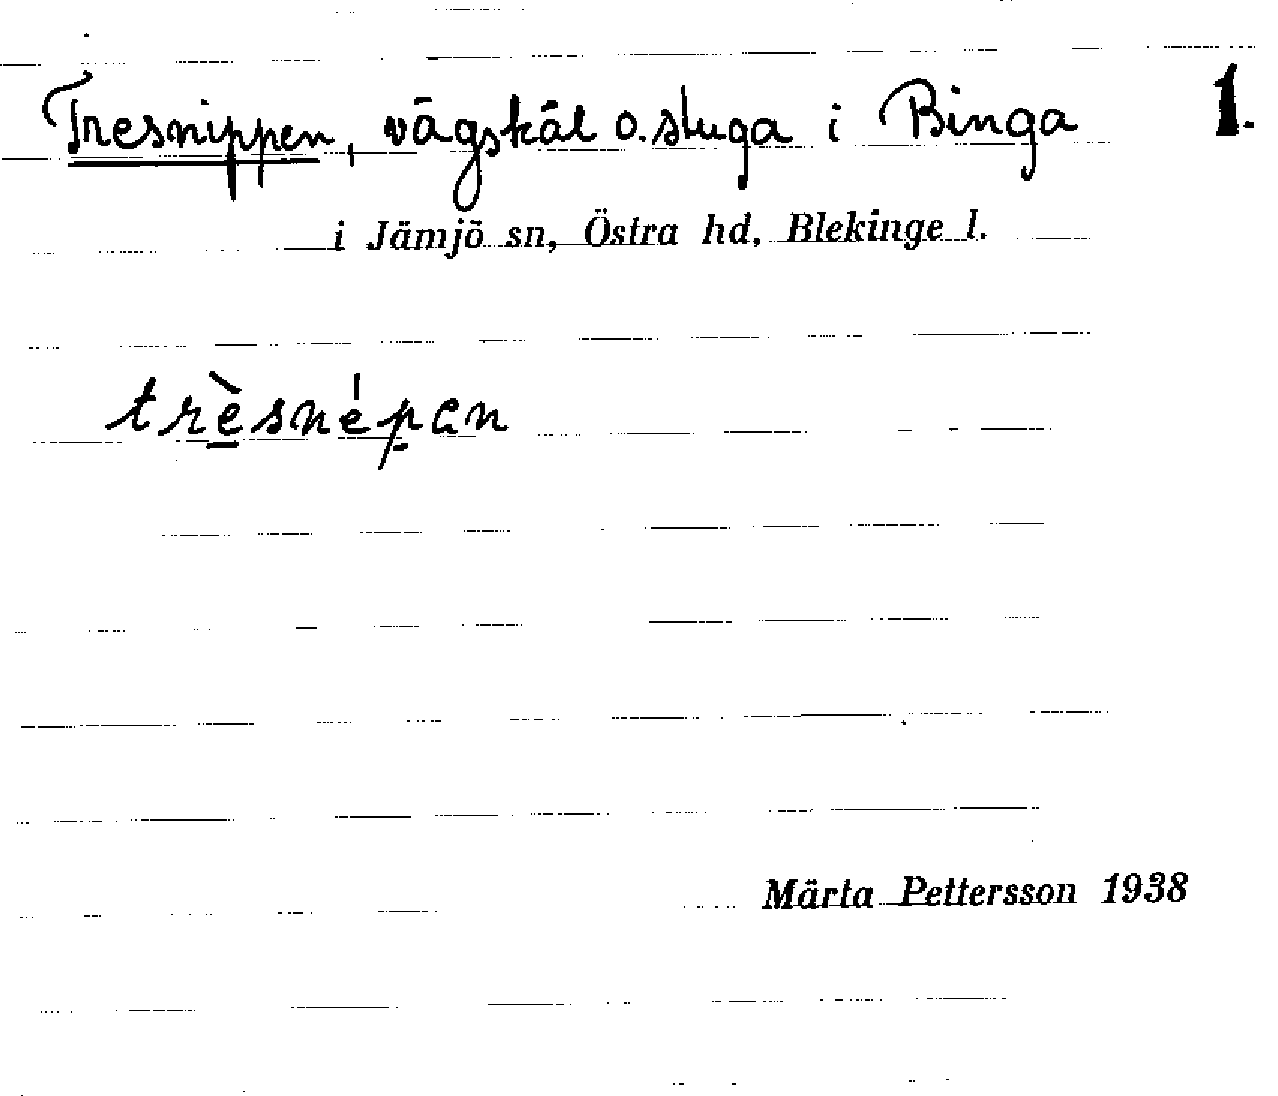 Tresnippen, vägskäl o. stuga i Binga 1.
i Jämjö sn, Östra hd, Blekinge l.
trèsnépan
Märta Pettersson 1938